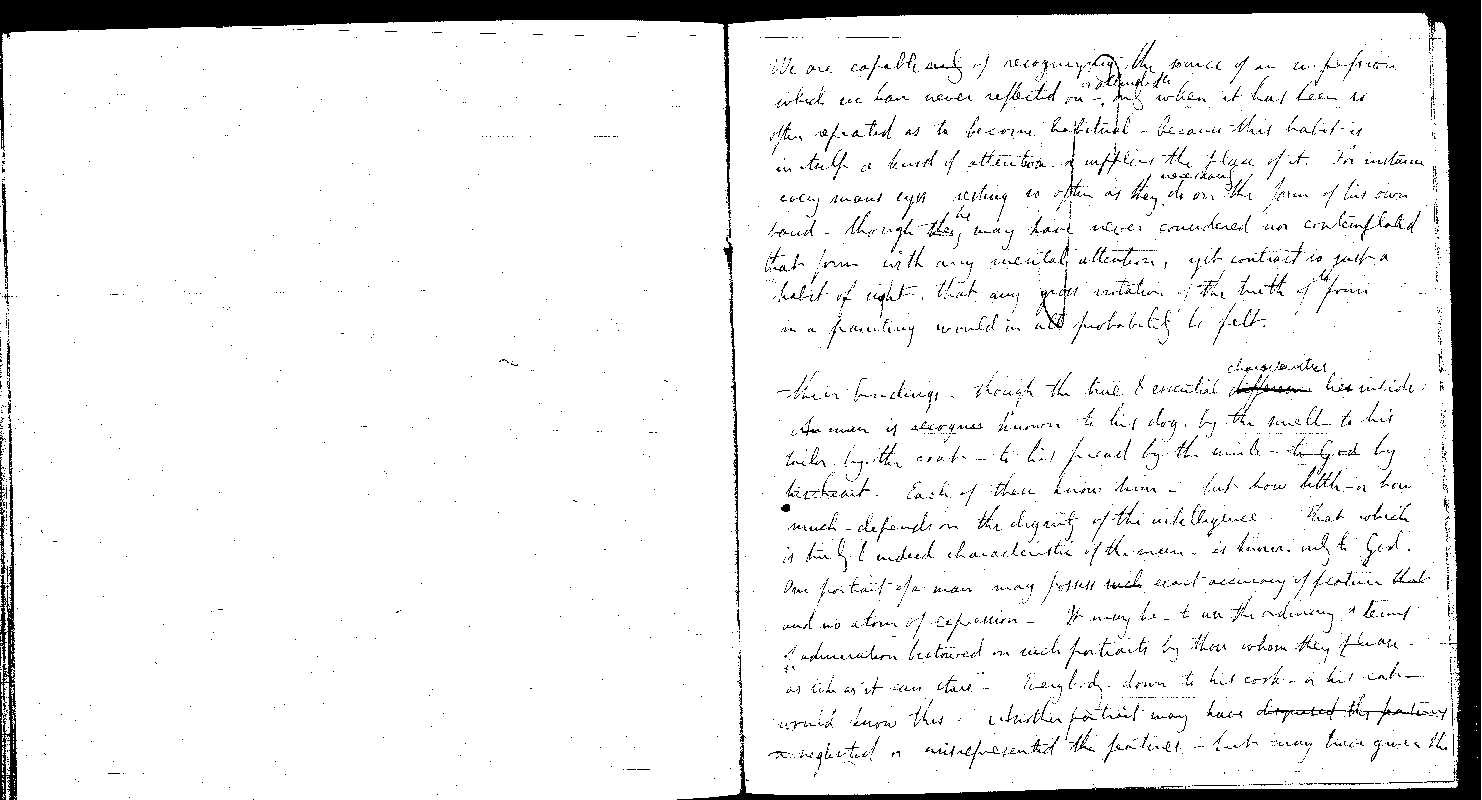 We are capable only of recognizing the source of an impression
or attended to
which we have never reflected on -, only when it has been so
often repeated as to become habitual - because this habit is
in itself a kind of attention & supplies the place of it. For instance
every mans eyes resting so often as they necessarily do on the form of his own
hand - though they he may have never considered nor contemplated
that form with any mental attention, yet contract so just a
habit of sight, that any gross violation of the truth of its form
in a painting would in all probability be felt.
their bindings - though the true & essential difference characteristics lies inside.
A man is recognised known to his dog, by the smell - to his
tailor by the coat - to his friend by the smile - to God by
his heart. Each of these know him - but how little - or how
much - depends on the dignity of the intelligence. That which
is truly & indeed characteristic of the man - is known only to God.
One portrait of a man may possess such exact accuracy of feature that
and no atom of expression - It may be - to use the ordinary terms
of admiration bestowed on such portraits by those whom they please -
"as like as it can stare" - Everybody - down to his cook - or his cat -
would know this. Another portrait may have
neglected or misrepresented the features - but may have given the